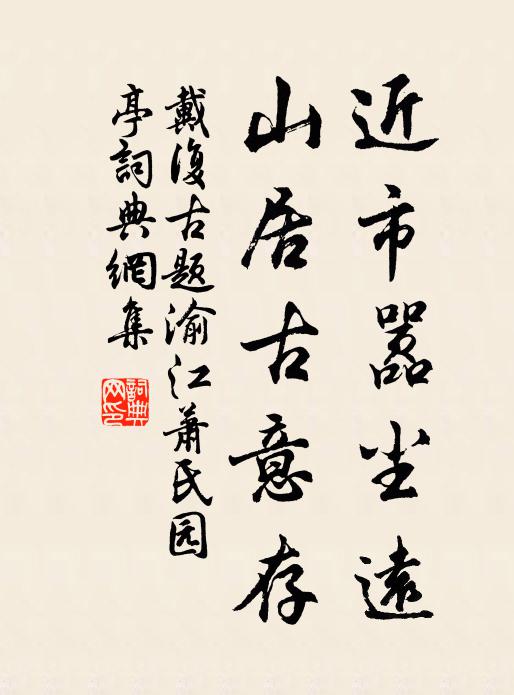 近市嚣尘遠
山居古意存
戴復古题渝江萧民园
亭詞典網集
詞典网印